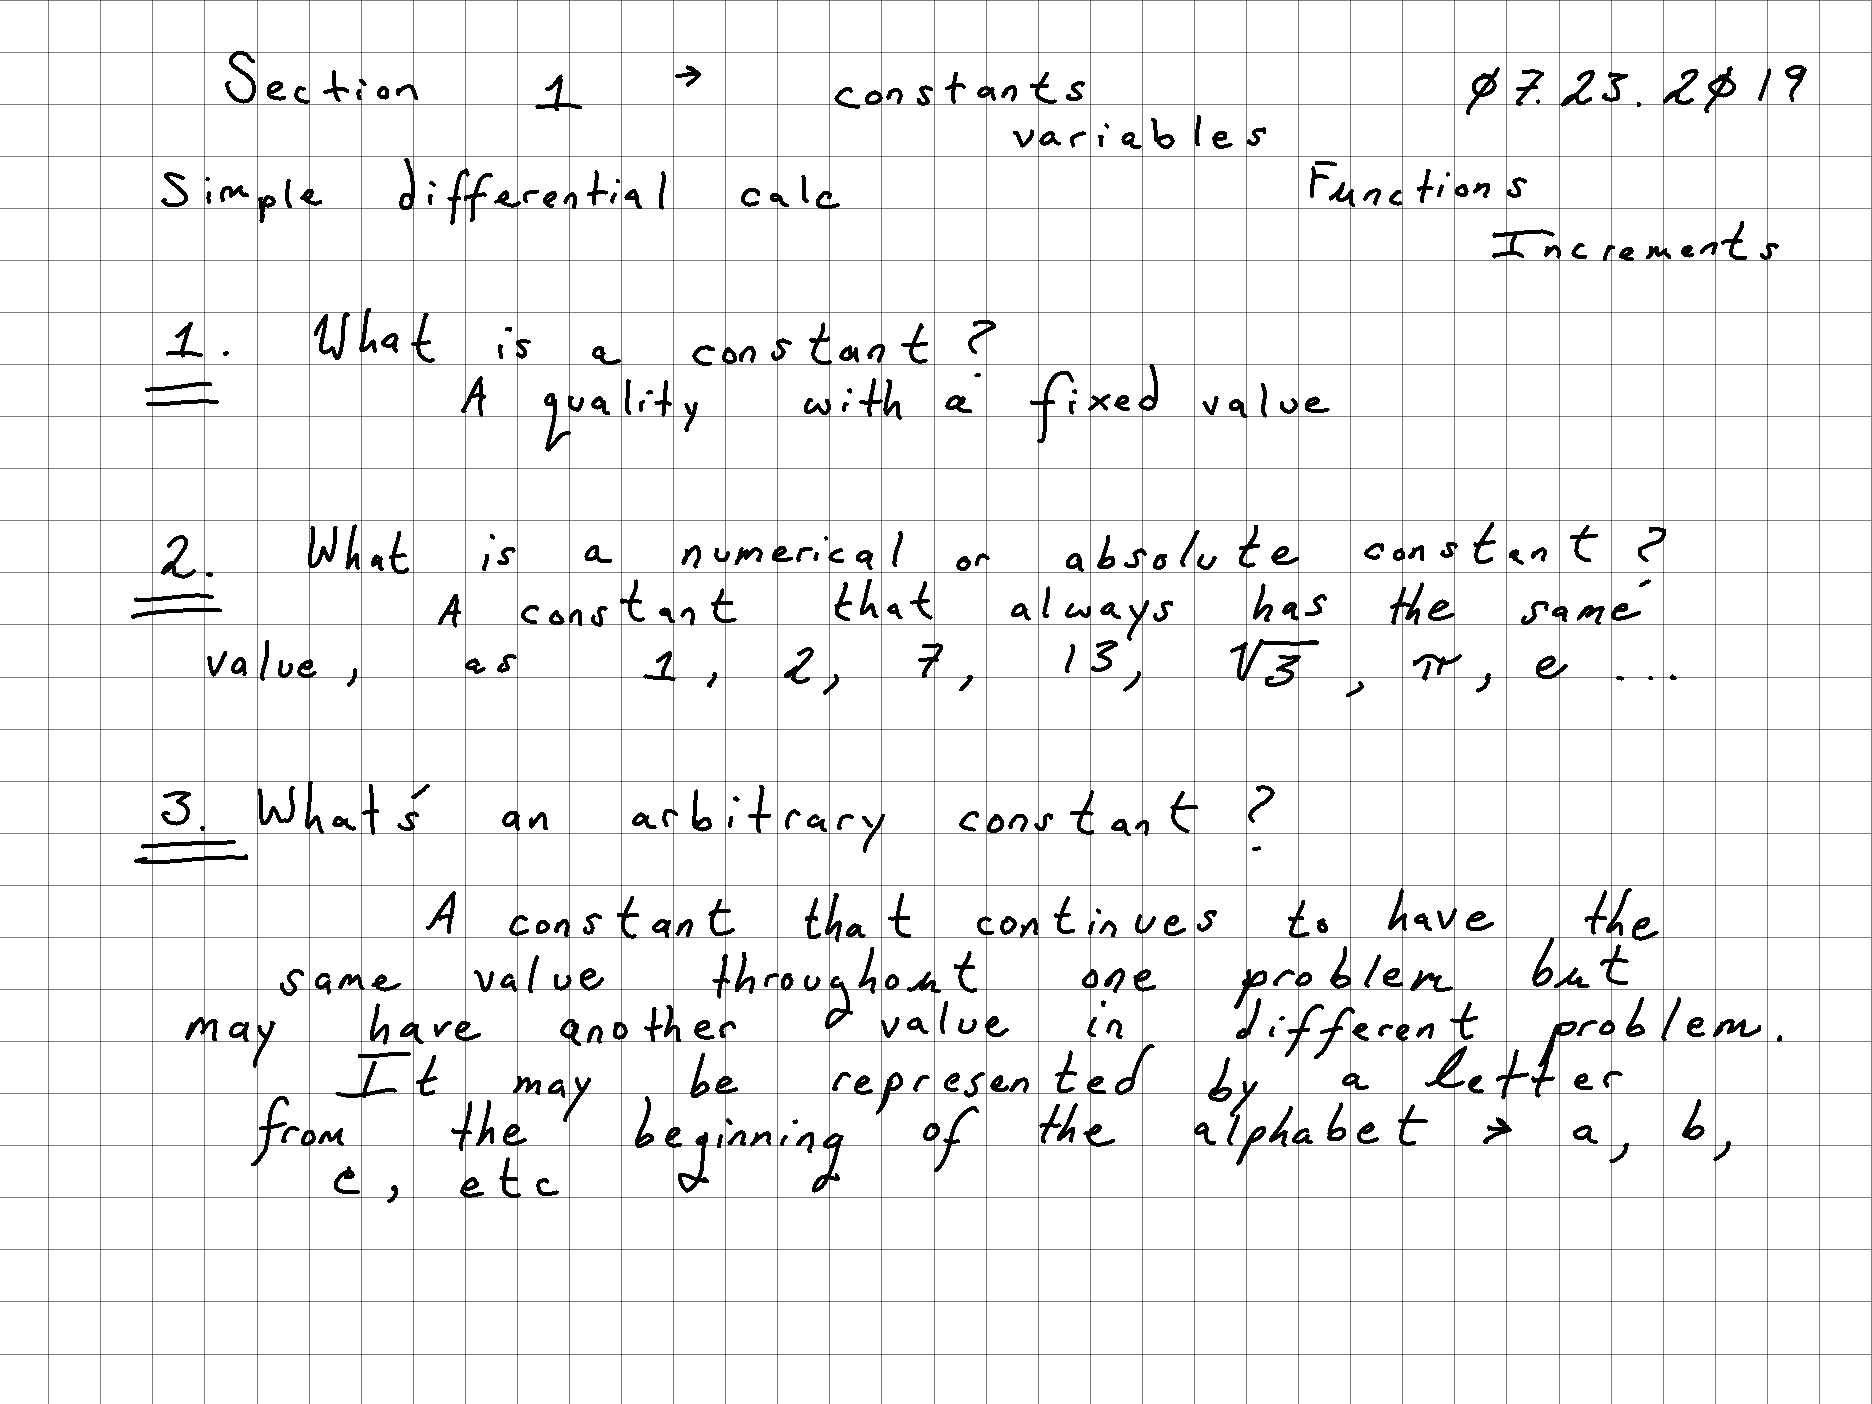 Section 1 → constants Ø7.23.2Ø19
variables
Simple differential calc Functions
Increments
1. What is a constant?
A quality with a fixed value
2. What is a numerical or absolute constant?
A constant that always has the same
value, as 1, 2, 7, 13, √3, π, e ...
3. What's an arbitrary constant?
A constant that continues to have the
same value throughout one problem but
may have another value in different problem.
It may be represented by a letter
from the beginning of the alphabet → a, b,
c, etc